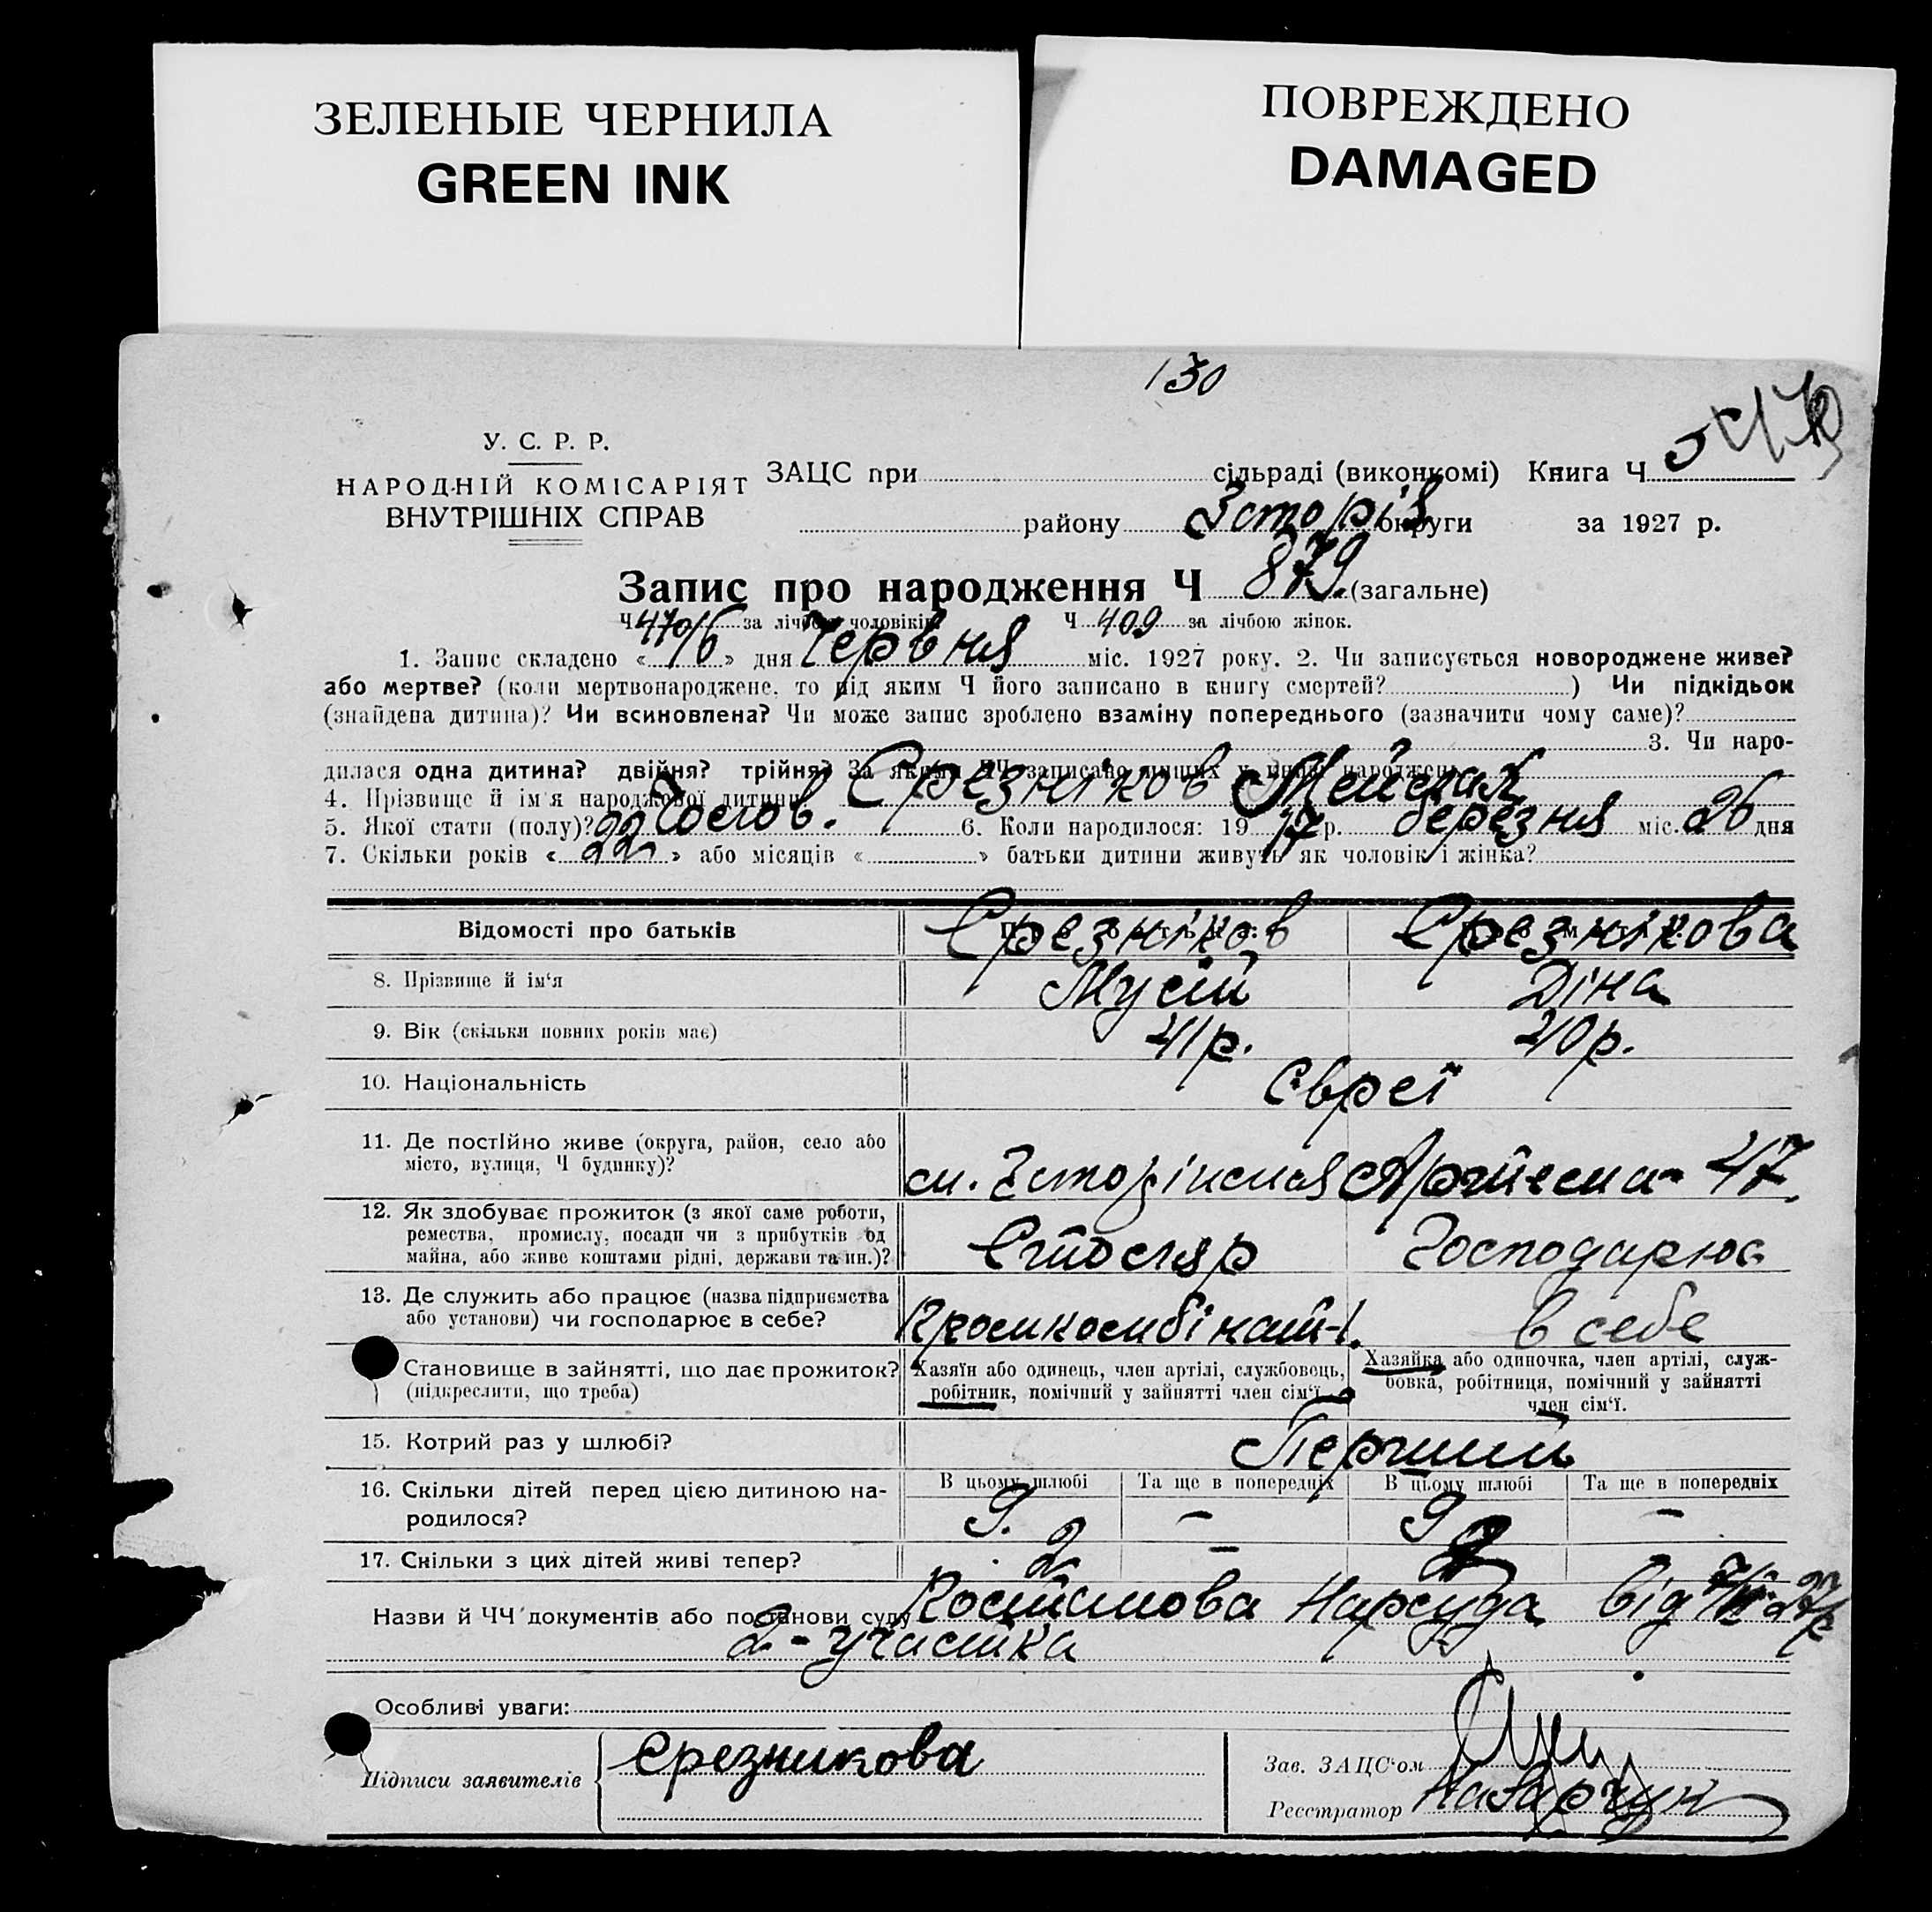 ЗЕЛЕНЫЕ ЧЕРНИЛА
GREEN INK
ПОВРЕЖДЕНО
DAMAGED
130
У. С. Р. Р.
НАРОДНІЙ КОМІСАРІЯТ
ВНУТРІШНІХ СПРАВ
ЗАЦС при сільраді (виконкомі) Книга Ч
району округи за 1927 р.
Запис про народження Ч 879. (загальне)
Ч 470 за лічбою чоловіків Ч 409 за лічбою жінок.
1. Запис складено « /6 » дня Червня міс. 1927 року. 2. Чи записується новороджене живе?
або мертве? (коли мертвонароджене, то під яким Ч його записано в книгу смертей? ) Чи підкідьок
(знайдена дитина)? Чи всиновлена? Чи може запис зроблено взаміну попереднього (зазначити чому саме)?
3. Чи наро-
дилася одна дитина? двійня? трійня? За якими ЧЧ записано инших у книзі народжень
4. Прізвище й ім'я народженої дитини Срезніков
5. Якої стати (полу)? Чолов. 6. Коли народилося: 19 17 р. березня міс. 26 дня
7. Скільки років « 22 » або місяців « » батьки дитини живуть як чоловік і жінка?
Відомості про батьків
Срезніков Срезнікова
8. Прізвище й ім'я Мусій Діна
9. Вік (скільки повних років має) 41 р. 40 р.
10. Національність Євреї
11. Де постійно живе (округа, район, село або
місто, вулиця, Ч будинку)? Артема 47.
12. Як здобуває прожиток (з якої саме роботи,
ремества, промислу, посади чи з прибутків од
майна, або живе коштами рідні, держави та ин.)? Столяр Господарює
13. Де служить або працює (назва підприємства
або установи) чи господарює в себе? Промкомбінат в себе
Становище в зайнятті, що дає прожиток?
(підкреслити, що треба)
Хазяїн або одинець, член артілі, службовець,
робітник, помічний у зайнятті член сім'ї
Хазяйка або одиночка, член артілі, служ-
бовка, робітниця, помічний у зайнятті
член сім'ї.
15. Котрий раз у шлюбі? Перший
16. Скільки дітей перед цією дитиною на-
родилося?
В цьому шлюбі Та ще в попередніх В цьому шлюбі Та ще в попередніх
9. – 9 –
17. Скільки з цих дітей живі тепер? 2 – 2
Назви й ЧЧ документів або постанови суду Нарсуда від
2 - участка
Особливі уваги:
Підписи заявителів Срезникова
Зав. ЗАЦС'ом
Реєстратор